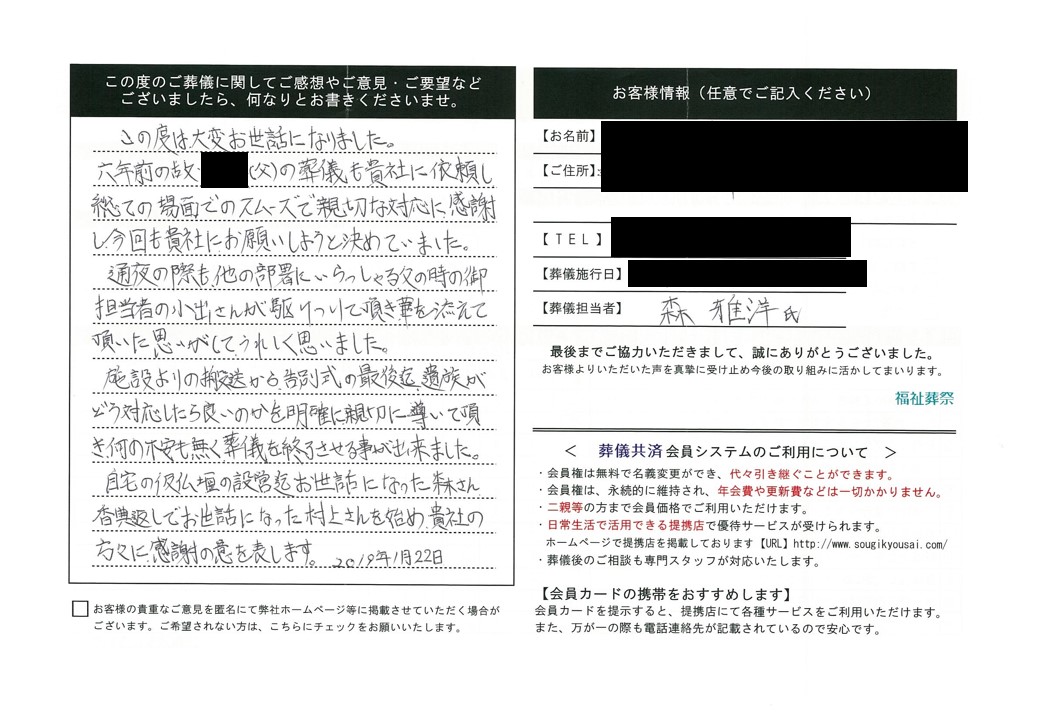 この度のご葬儀に関してご感想やご意見・ご要望など
ございましたら、何なりとお書きくださいませ。
この度は大変お世話になりました。
六年前の故 (父)の葬儀も貴社に依頼し
総ての場面でのスムーズで親切な対応に感謝
し今回も貴社にお願いしようと決めていました。
通夜の際も、他の部署にいらっしゃる父の時の御
担当者の小出さんが駆けつけて頂き華を添えて
頂いた思いがして、うれしく思いました。
施設よりの搬送から、告別式の最後迄、遺族が
どう対応したら良いのかを明確に親切に導いて頂
き何の不安も無く葬儀を終了させる事が出来ました。
自宅の仮仏壇の設営迄お世話になった森さん
香典返しでお世話になった村上さんを始め、貴社の
方々に感謝の意を表します。 2019年1月22日
お客様の貴重なご意見を匿名にて弊社ホームページ等に掲載させていただく場合が
ございます。ご希望されない方は、こちらにチェックをお願いいたします。
お客様情報(任意でご記入ください)
【お名前】
【ご住所】:
【TEL】
【葬儀施行日】
【葬儀担当者】 森 雅洋氏
最後までご協力いただきまして、誠にありがとうございました。
お客様よりいただいた声を真摯に受け止め今後の取り組みに活かしてまいります。
福祉葬祭
< 葬儀共済会員システムのご利用について >
・会員権は無料で名義変更ができ、代々引き継ぐことができます。
・会員権は、永続的に維持され、年会費や更新費などは一切かかりません。
・二親等の方まで会員価格でご利用いただけます。
・日常生活で活用できる提携店で優待サービスが受けられます。
ホームページで提携店を掲載しております【URL】http://www.sougikyousai.com/
・葬儀後のご相談も専門スタッフが対応いたします。
【会員カードの携帯をおすすめします】
会員カードを提示すると、提携店にて各種サービスをご利用いただけます。
また、万が一の際も電話連絡先が記載されているので安心です。